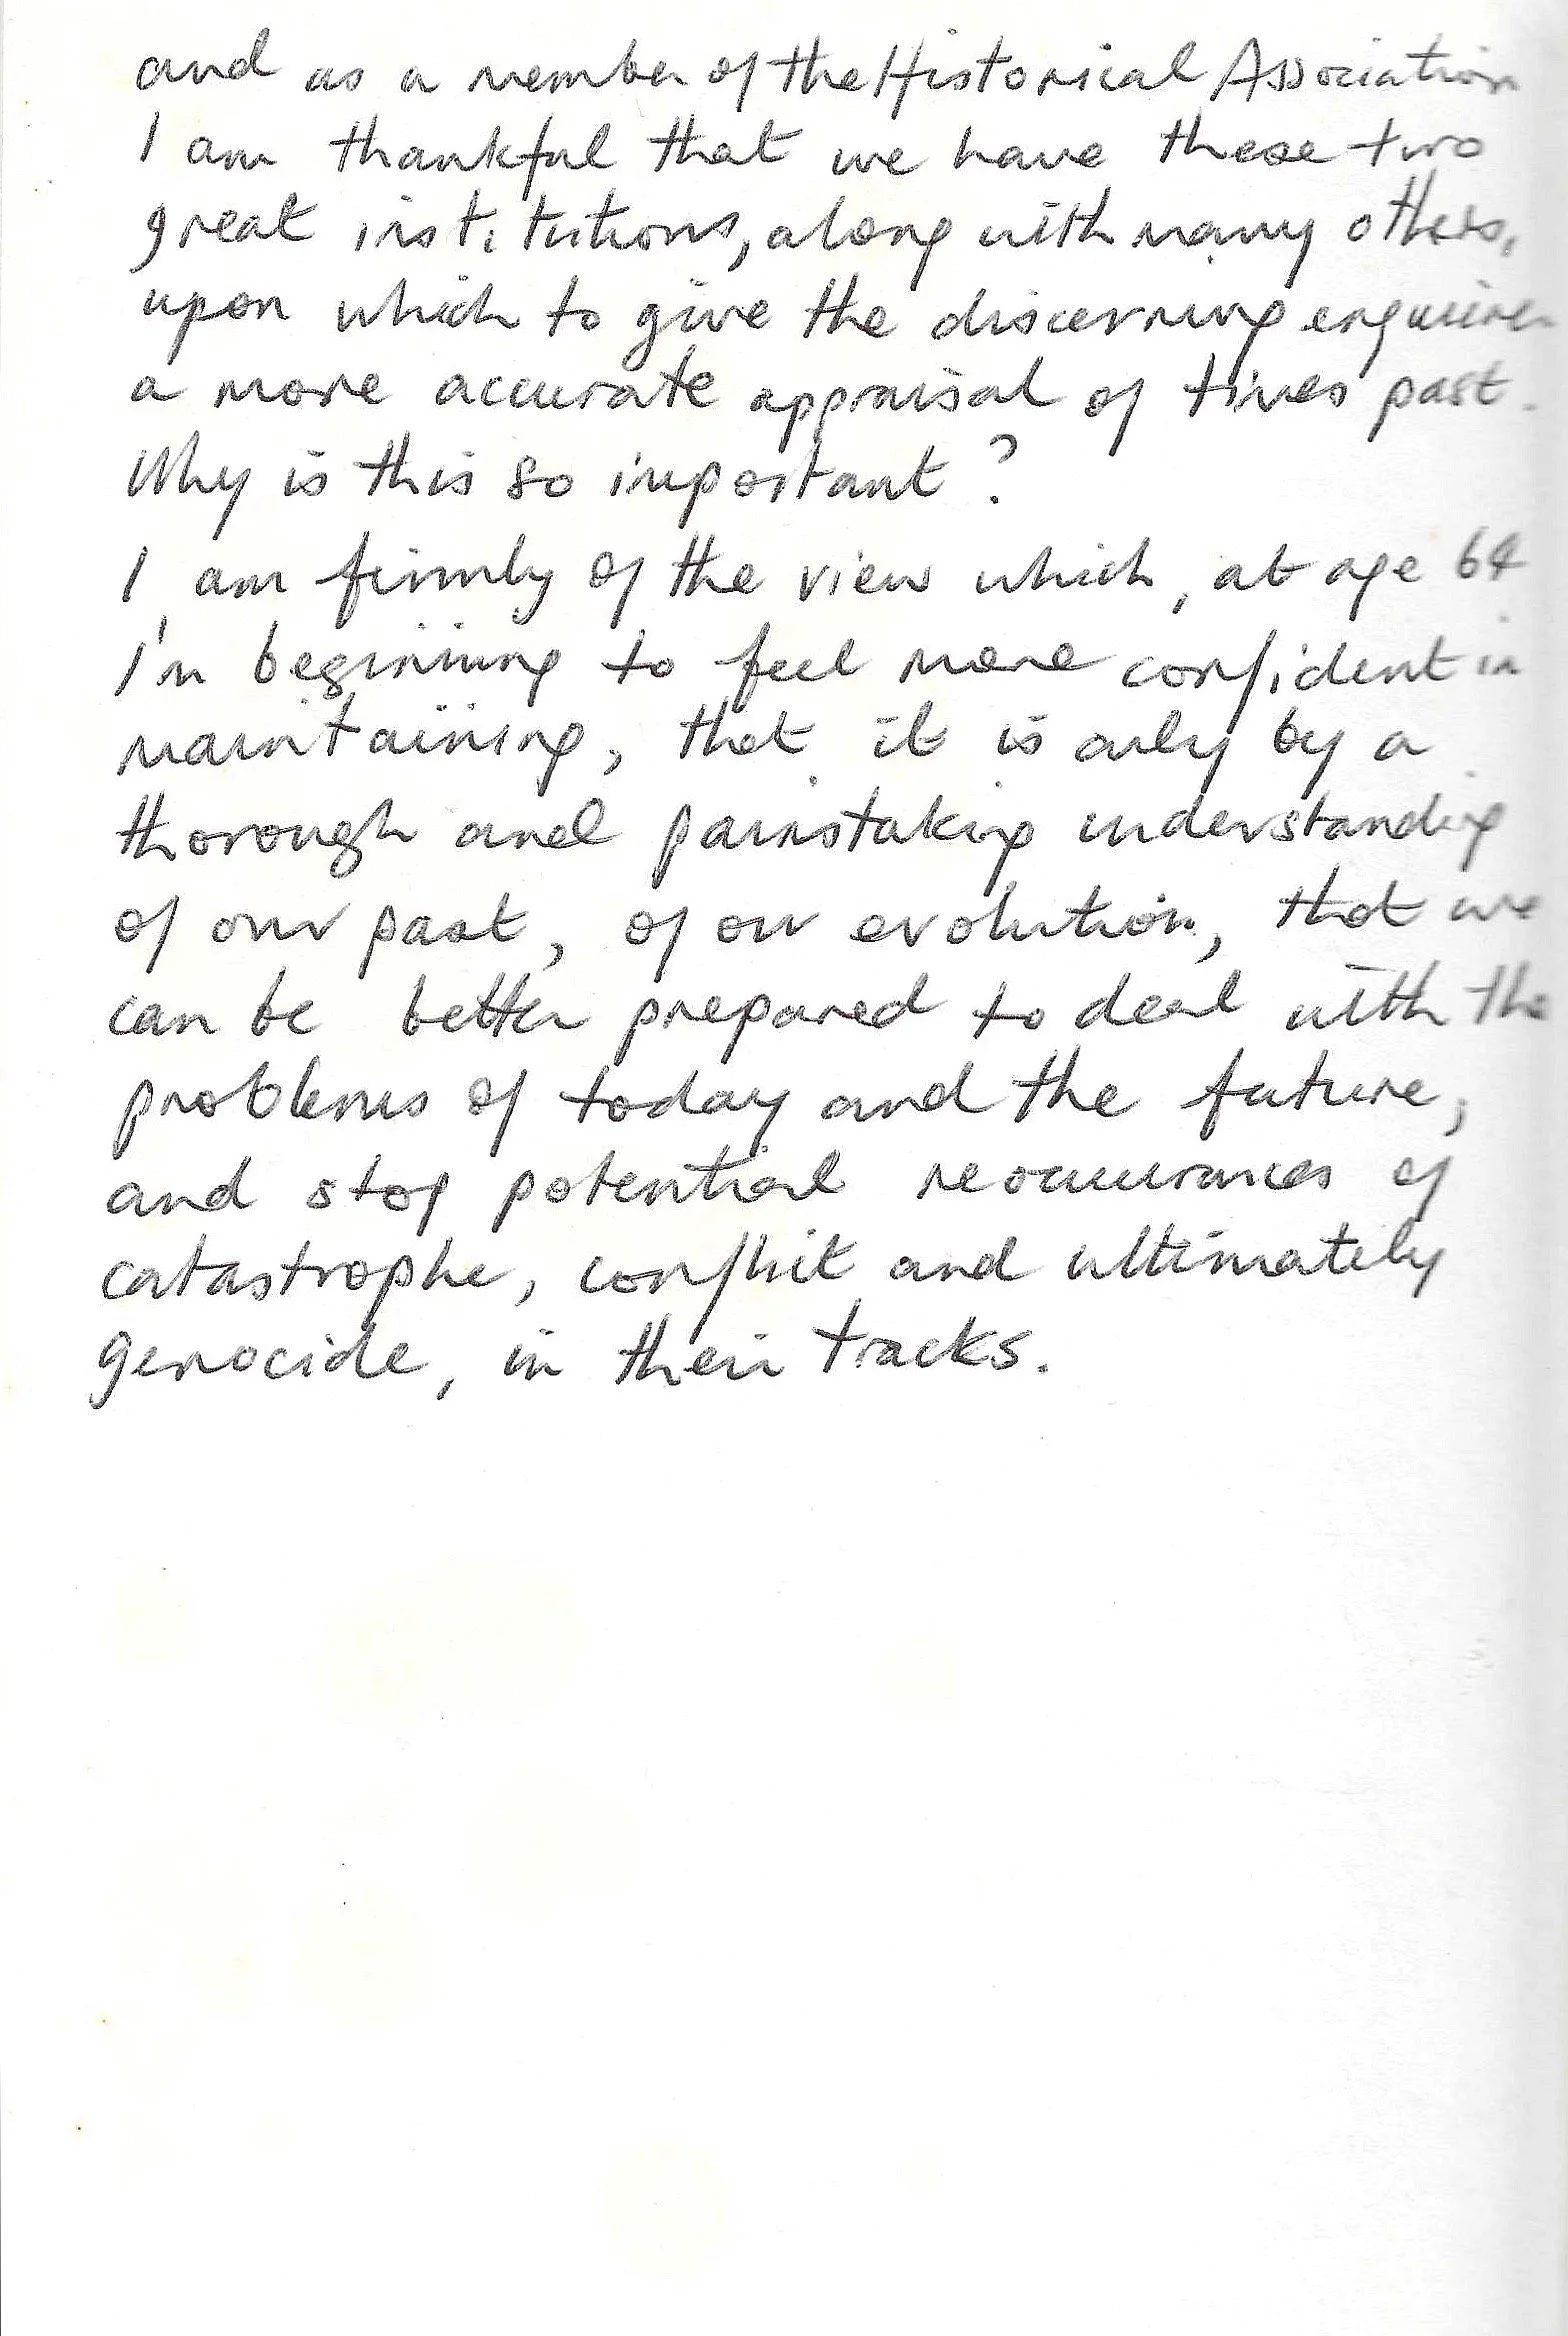 and as a member of the Historical Association
I am thankful that we have these two
great institutions, along with many others,
upon which to give the discerning enquirer
a more accurate appraisal of times past.
Why is this so important?
I am firmly of the view which, at age 64
I'm beginning to feel more confident in
maintaining, that it is only by a
thorough and painstaking understanding
of our past, of our evolution, that we
can be better prepared to deal with the
problems of today and the future,
and stop potential reoccurances of
catastrophe, conflict and ultimately
genocide, in their tracks.